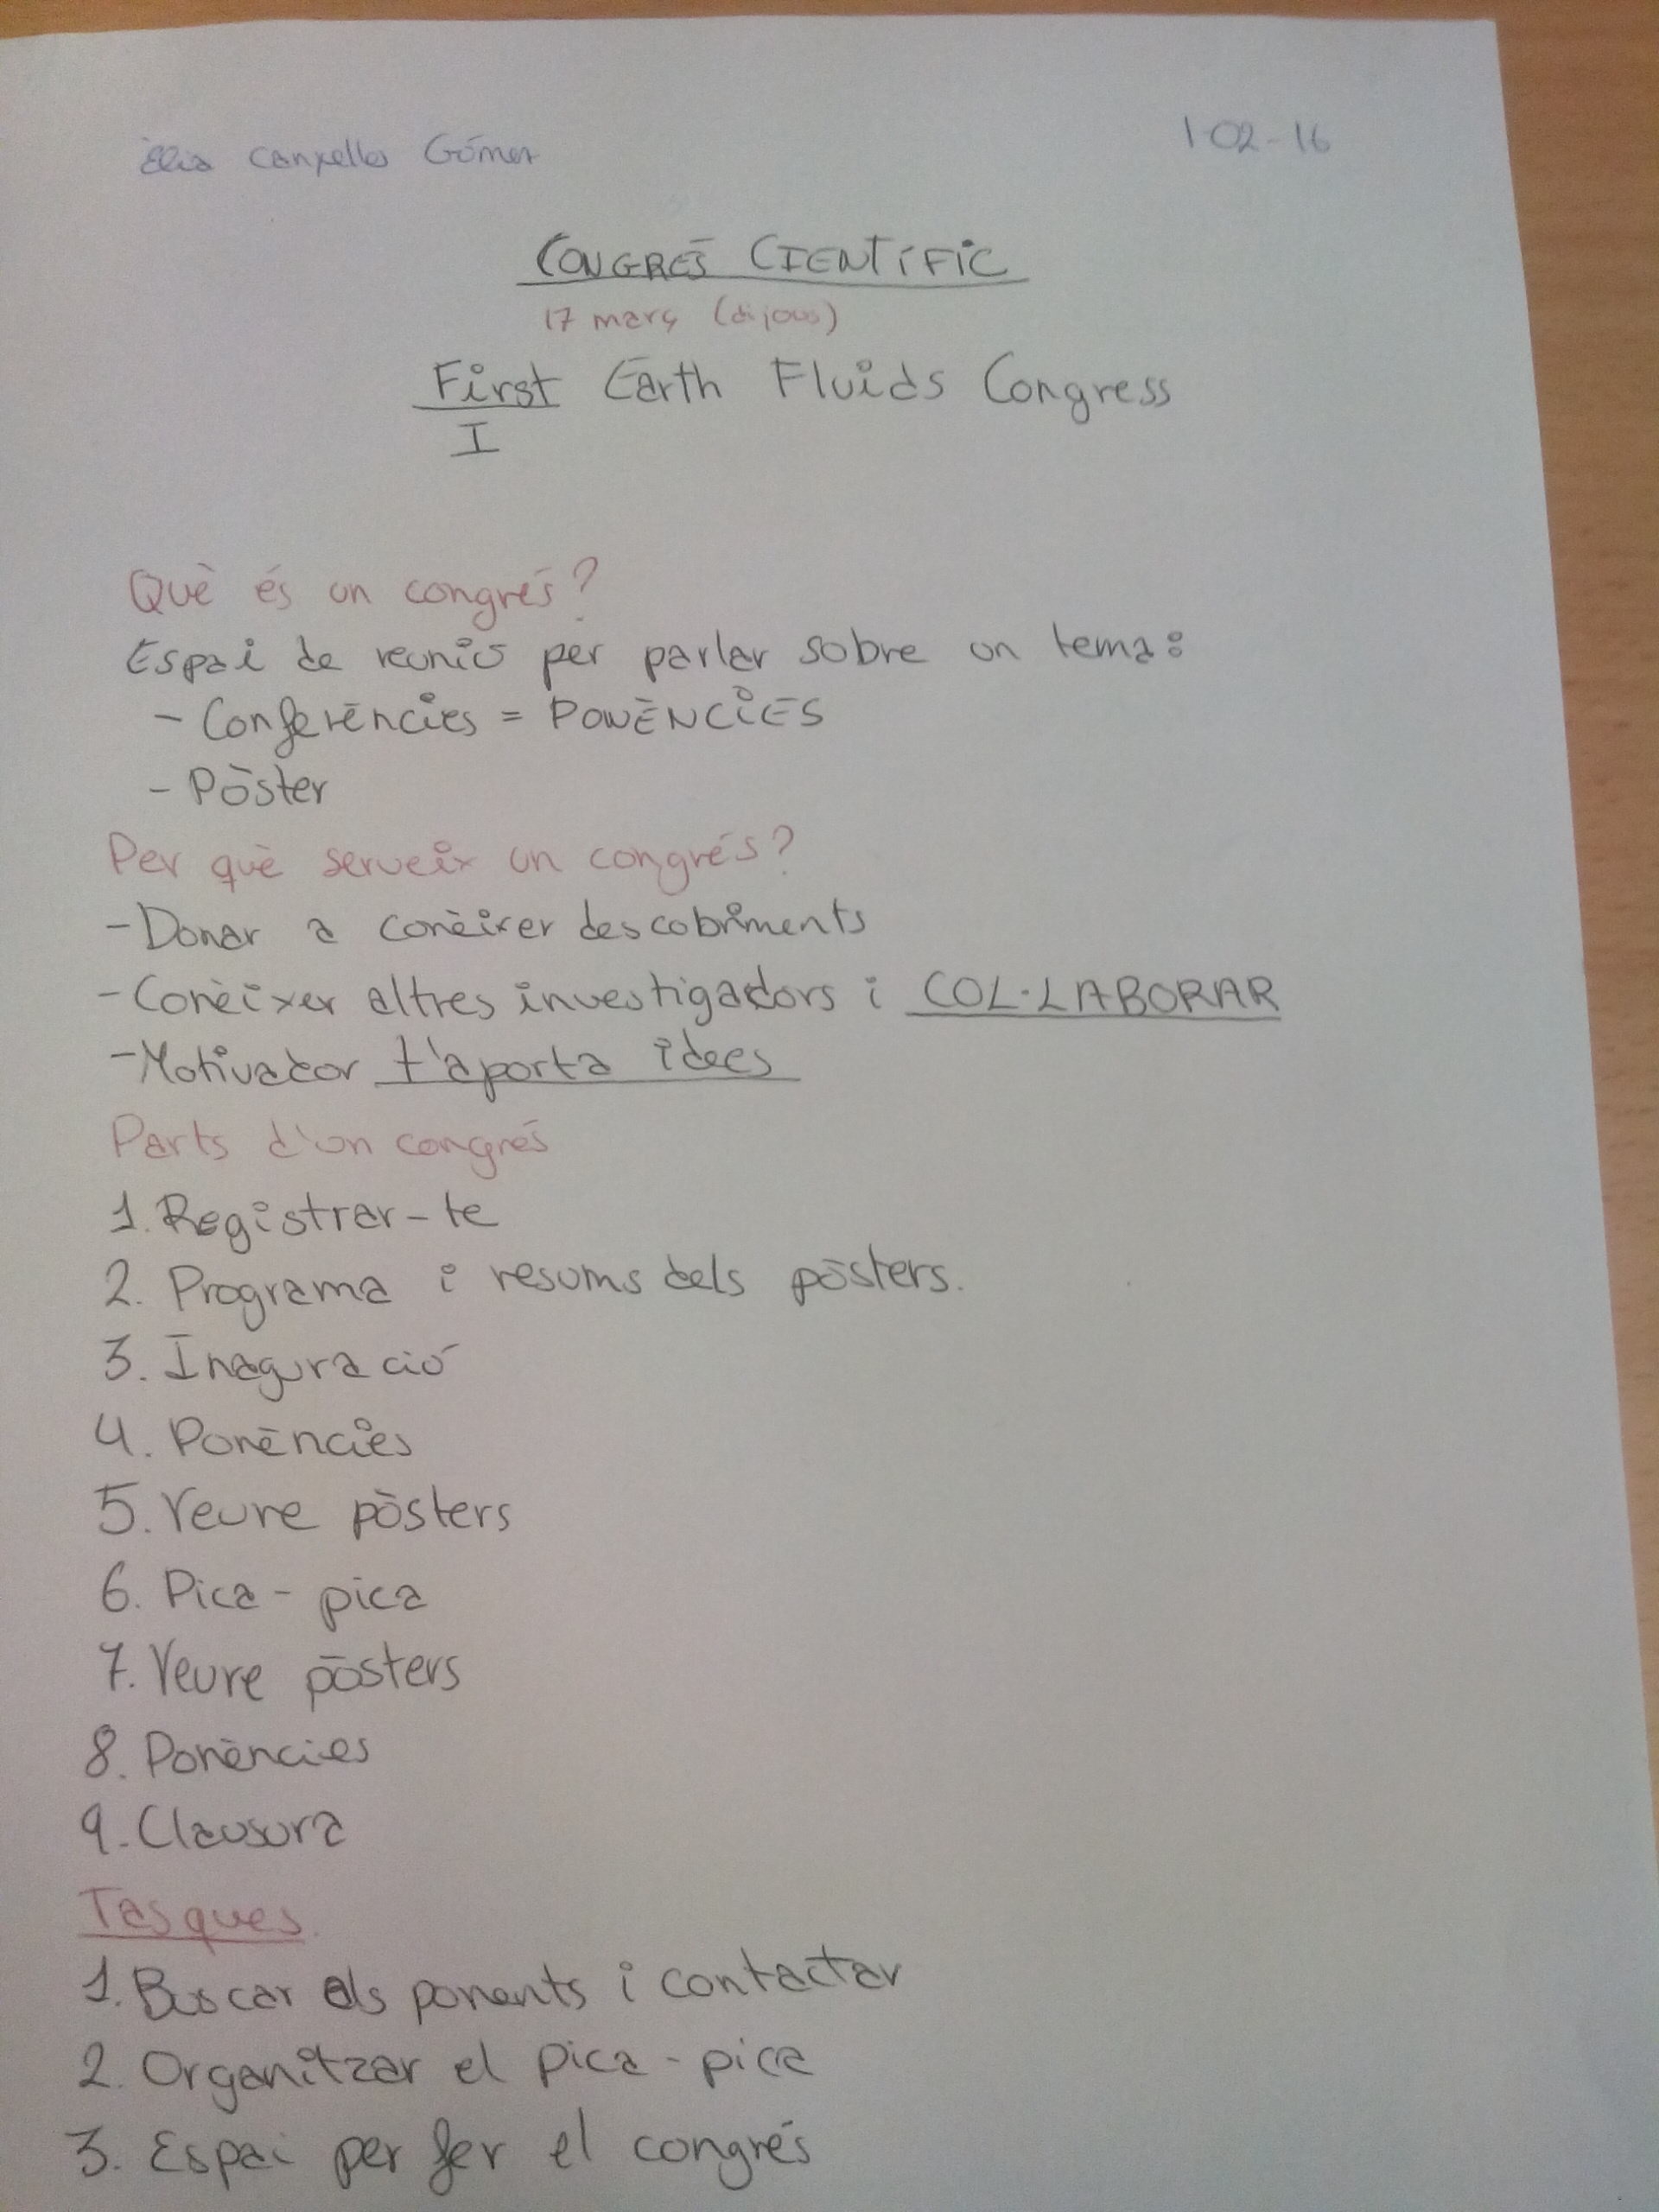 Èlia Canxells Gómez
1-02-16
CONGRÉS CIENTÍFIC
17 març (dijous)
First Earth Fluids Congress
I
Què és un congrés?
Espai de reunió per parlar sobre un tema:
- Conferències = PONÈNCIES
- Pòster
Per què serveix un congrés?
- Donar a conèixer descobriments
- Conèixer altres investigadors i COL·LABORAR
- Motivador t'aporta idees
Parts d'un congrés
1. Registrar-te
2. Programa i resums dels pòsters.
3. Inaguració
4. Ponències
5. Veure pòsters
6. Pica-pica
7. Veure pòsters
8. Ponències
9. Clausura
Tasques
1. Buscar els ponents i contactar
2. Organitzar el pica-pica
3. Espai per fer el congrés